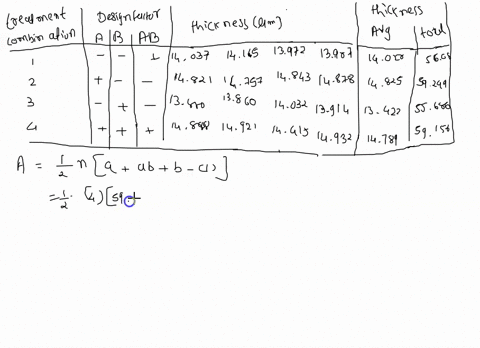 treatment Design factor thickness (μm) thickness
combination A B AB Avg total
1 - - + 14.037 14.165 13.972 13.907 56.08
2 + - - 14.821 14.757 14.843 14.878 14.825 59.299
3 - + - 13.880 13.860 14.032 13.914 55.686
4 + + + 14.888 14.921 14.415 14.932 14.789 59.156
A = 1/2 n [a + ab + b - (1)]
= 1/2 . (4) [59.